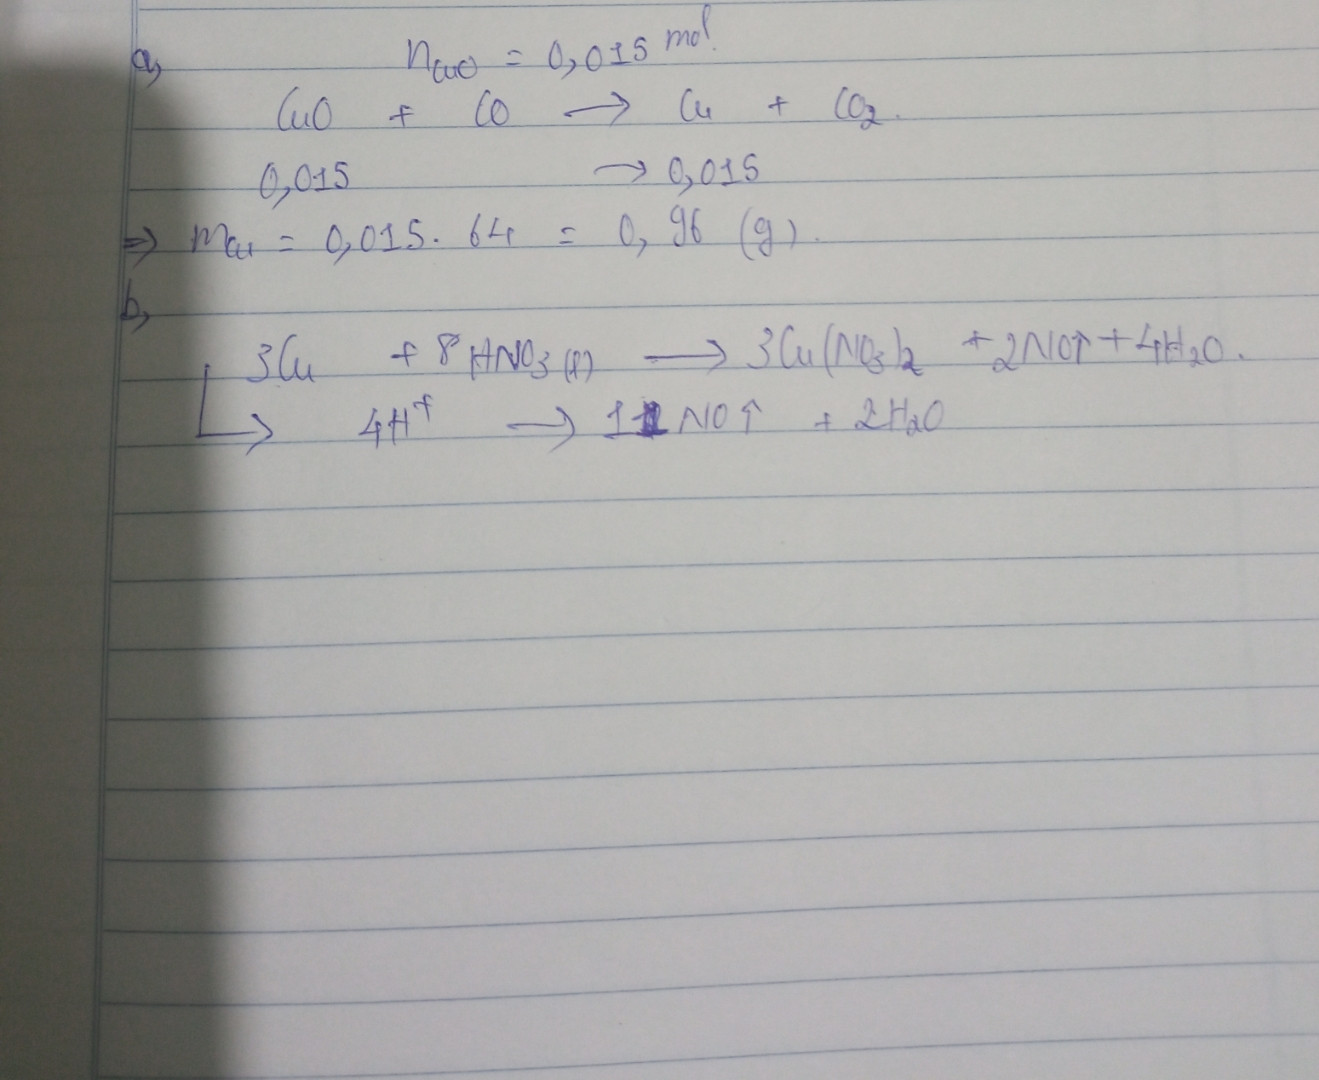 a, nCuO = 0,015 mol.
CuO + CO → Cu + CO2.
0,015 → 0,015
⇒ mCu = 0,015. 64 = 0,96 (g).
b,
3Cu + 8HNO3 (l) → 3Cu(NO3)2 + 2NO↑ + 4H2O.
4H+ → 1 NO↑ + 2H2O